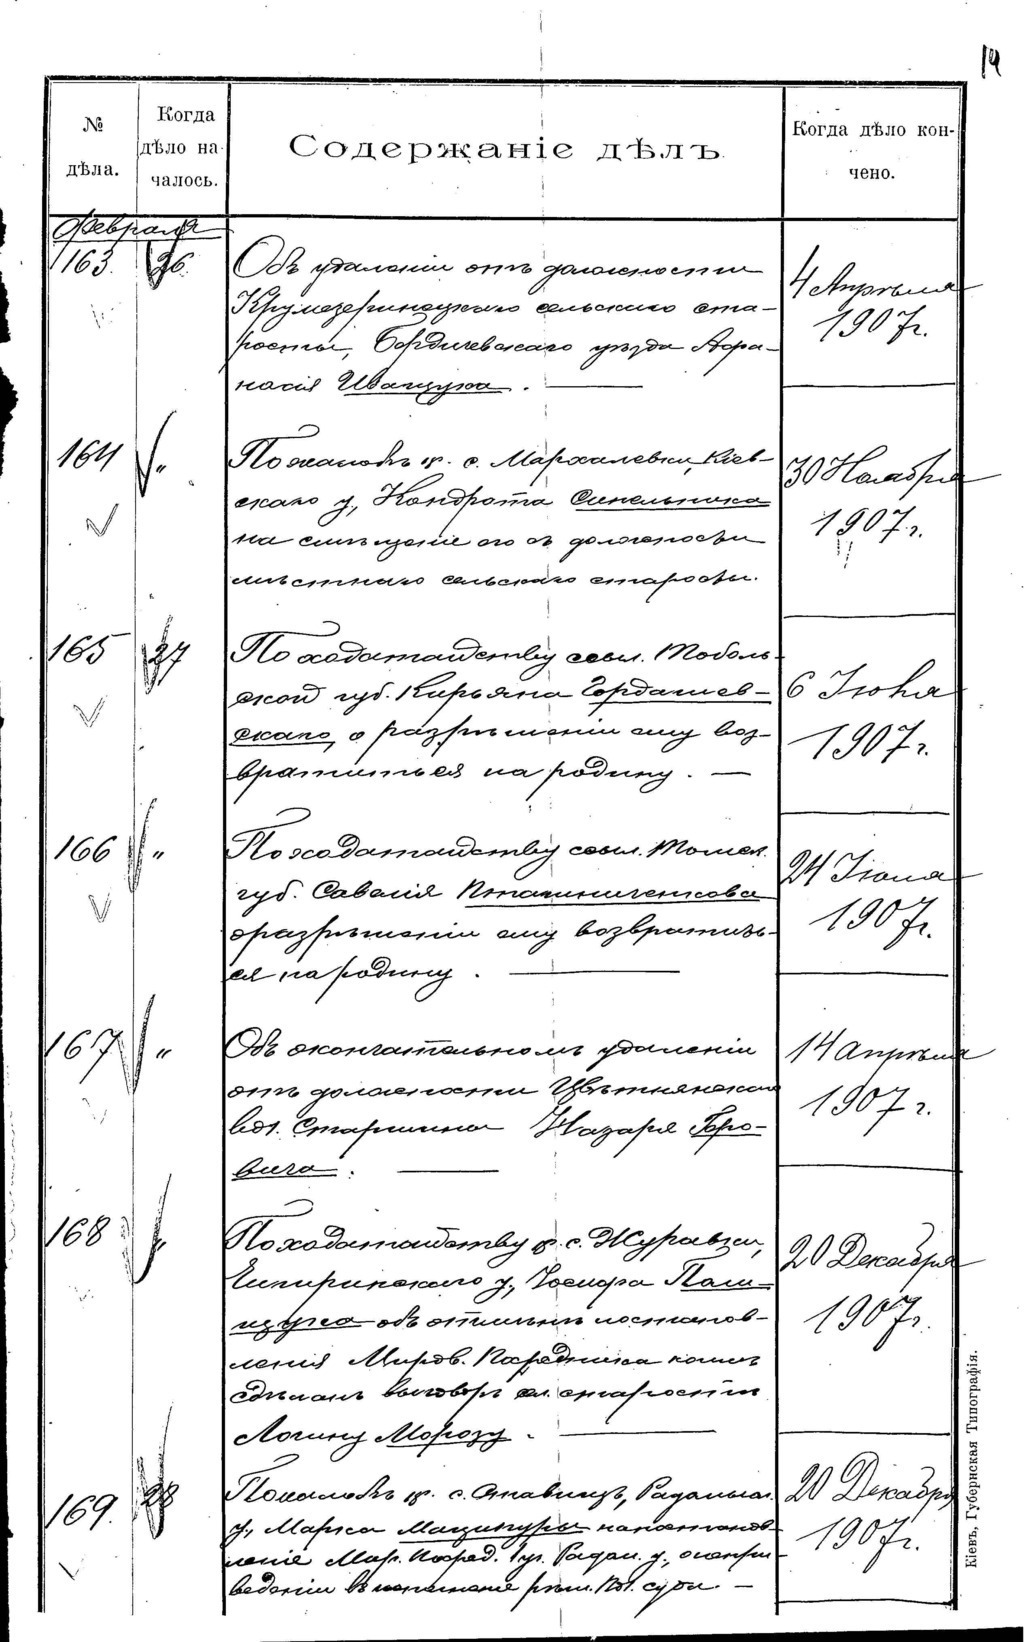 14
№
дѣла.
Когда
дѣло на-
чалось.
Содержаніе дѣлъ.
Когда дѣло кон-
чено.
Февраля
163. 26.
Объ удаленіи отъ должности
сельскаго ста-
росты, Бердичевскаго уѣзда Афа-
насія Иванчука.
4 Апрѣля
1907 г.
164 "
По жалобѣ кр. с. Мархалевки, Кіев-
скаго у., Кондрата Синельника
на смѣщеніе его съ должности
мѣстнаго сельскаго старосты.
30 Ноября
1907 г.
165 27
По ходатайству ссыл. Тоболь-
ской губ. Кирьяна Гордашев-
скаго, о разрѣшеніи ему воз-
вратиться на родину.
6 Іюня
1907 г.
166 "
По ходатайству ссыл. Томск.
губ. Савелія
о разрѣшеніи ему возвратить-
ся на родину.
24 Іюля
1907 г.
167 "
Объ окончательномъ удаленіи
отъ должности Цвѣтнянскаго
вол. Старшины Назарія Горо-
вича.
14 апрѣля
1907 г.
168 "
По ходатайству кр. с. Журавки,
Чигиринскаго у., Іосифа Пали-
щука объ отмѣнѣ постанов-
ленія Миров. Посредника коимъ
сдѣланъ выговоръ сел. старостѣ
Логину Морозу.
20 Декабря
1907 г.
169. 28
По жалобѣ кр. с. Ставищъ, Радомысл.
у., Марка Маципуры на постанов-
леніе Мир. Посред. 1 уч. Радом. у., о непри-
веденіи въ исполненіе рѣш. Вол. суда.
20 Декабря
1907 г.
Кіевъ, Губернская Типографія.